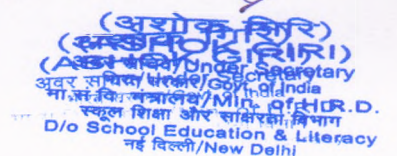 (अशोक गिरि)
(ASHOK GIRI)
अवर सचिव/Under Secretary
भारत सरकार/Govt. of India
मा.सं.वि. मंत्रालय/Min. of H.R.D.
स्कूल शिक्षा और साक्षरता विभाग
D/o School Education & Literacy
नई दिल्ली/New Delhi